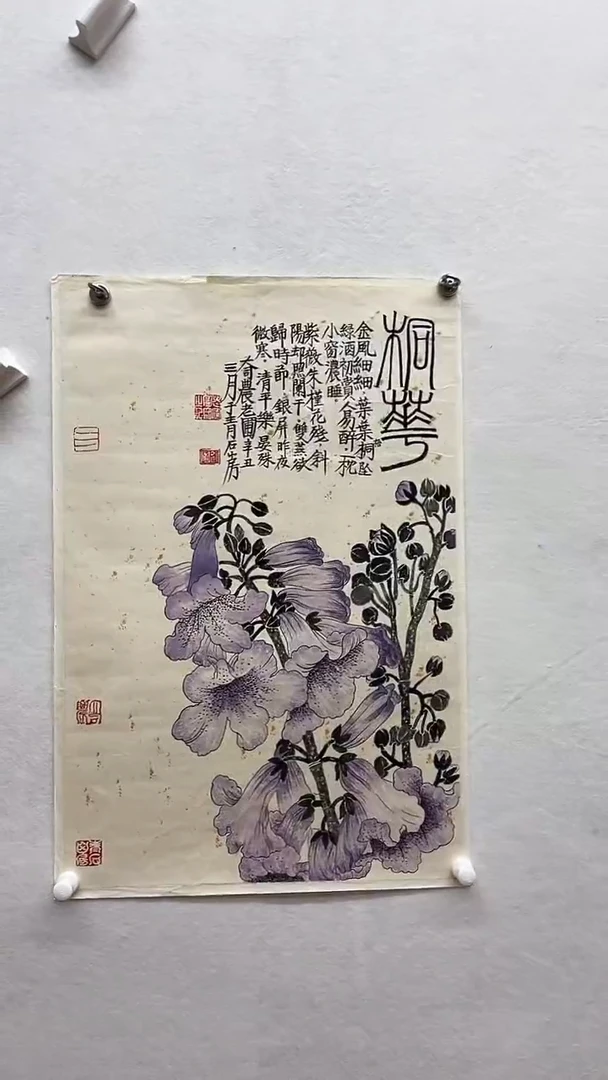 桐華
金風細細·葉葉桐墜
綠酒初嘗人易醉·一枕
小窗濃睡·
紫薇朱槿花殘·斜
陽却照闌干·雙燕欲
歸時節·銀屏昨夜
微寒·清平樂·晏殊
奇農老圃辛丑
三月于青石山房